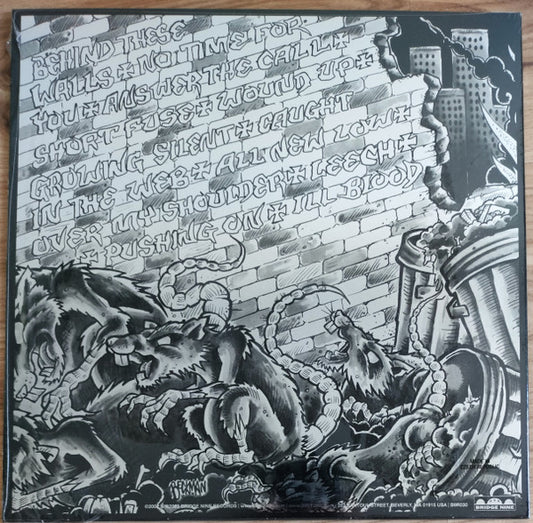 BEHIND THESE
WALLS + NO TIME FOR
YOU + ANSWER THE CALL +
SHORT FUSE + WOUND UP +
GROWING SILENT + CAUGHT
IN THE WEB + ALL NEW LOW +
OVER MY SHOULDER + LEECH +
+ PUSHING ON + ILL BLOOD
BRIDGE NINE RECORDS
STREET, BEVERLY, MA 01915 USA
BRIDGE NINE